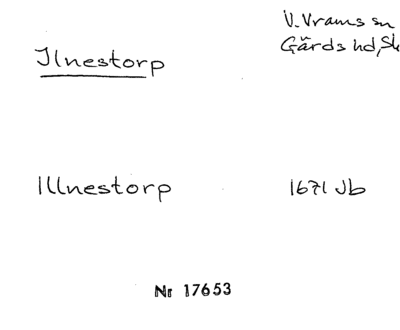 V. Vrams sn
Ilnestorp
Gärds hd, Sk
Illnestorp
1671 Jb
Nr 17653